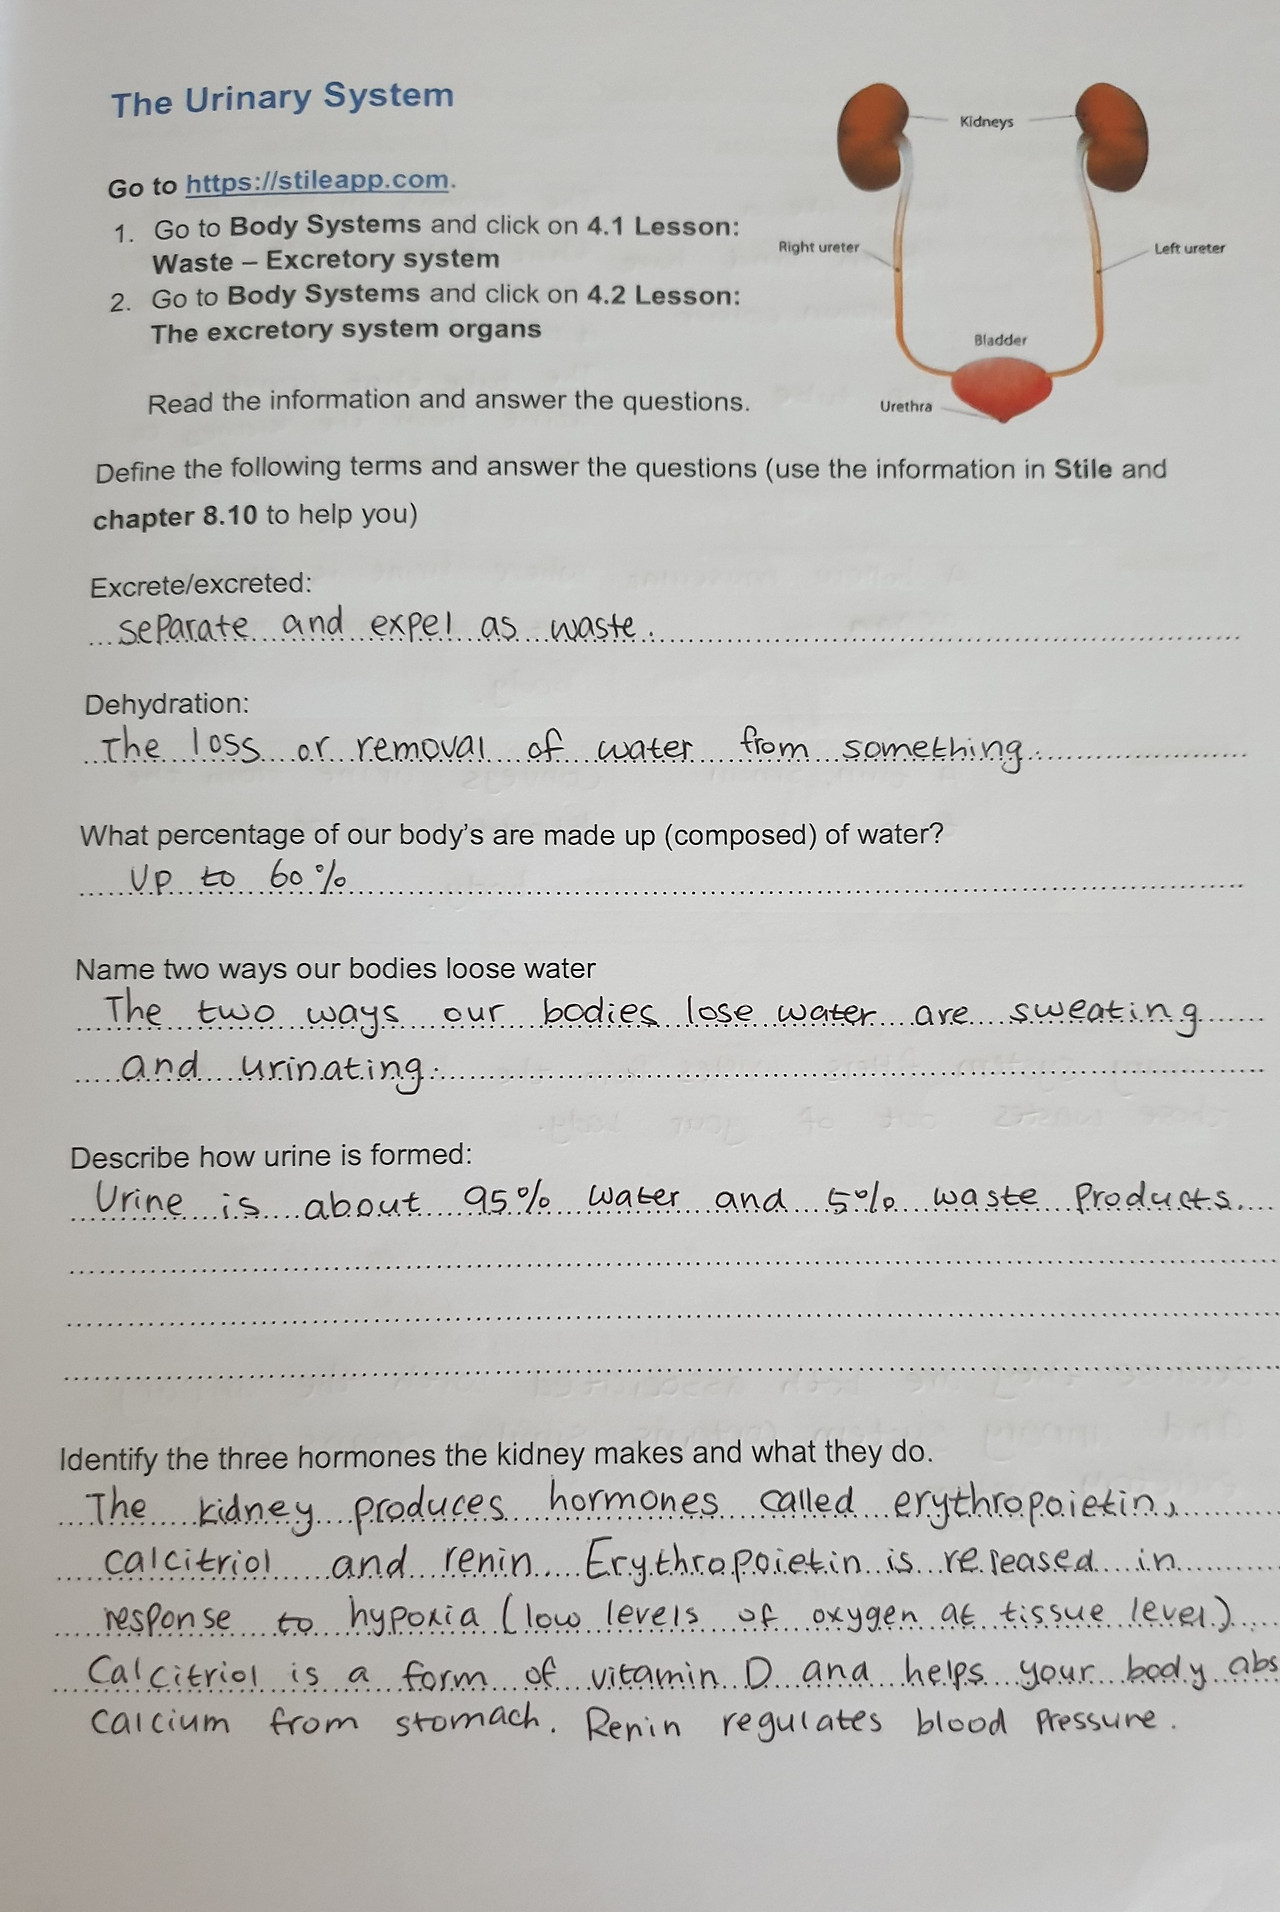 The Urinary System
Kidneys
Go to https://stileapp.com.
1. Go to Body Systems and click on 4.1 Lesson:
Waste – Excretory system
Right ureter
Left ureter
2. Go to Body Systems and click on 4.2 Lesson:
The excretory system organs
Bladder
Read the information and answer the questions.
Urethra
Define the following terms and answer the questions (use the information in Stile and
chapter 8.10 to help you)
Excrete/excreted:
separate and expel as waste.
Dehydration:
The loss or removal of water from something.
What percentage of our body's are made up (composed) of water?
Up to 60%
Name two ways our bodies loose water
The two ways our bodies lose water are sweating
and urinating.
Describe how urine is formed:
Urine is about 95% water and 5% waste products.
Identify the three hormones the kidney makes and what they do.
The kidney produces hormones called erythropoietin,
calcitriol and renin. Erythropoietin is released in
response to hypoxia (low levels of oxygen at tissue level)
Calcitriol is a form of vitamin D and helps your body abs
calcium from stomach. Renin regulates blood pressure.